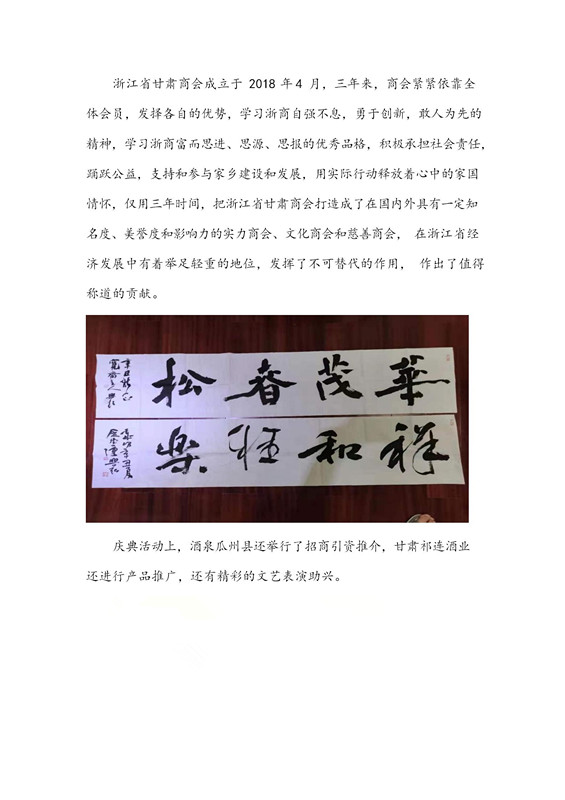 浙江省甘肃商会成立于 2018 年4 月，三年来，商会紧紧依靠全
体会员，发择各自的优势，学习浙商自强不息，勇于创新，敢人为先的
精神，学习浙商富而思进、思源、思报的优秀品格，积极承担社会责任，
踊跃公益，支持和参与家乡建设和发展，用实际行动释放着心中的家国
情怀，仅用三年时间，把浙江省甘肃商会打造成了在国内外具有一定知
名度、美誉度和影响力的实力商会、文化商会和慈善商会， 在浙江省经
济发展中有着举足轻重的地位，发挥了不可替代的作用， 作出了值得
称道的贡献。
華茂春松
祥和
樂
庆典活动上，酒泉瓜州县还举行了招商引资推介，甘肃祁连酒业
还进行产品推广，还有精彩的文艺表演助兴。